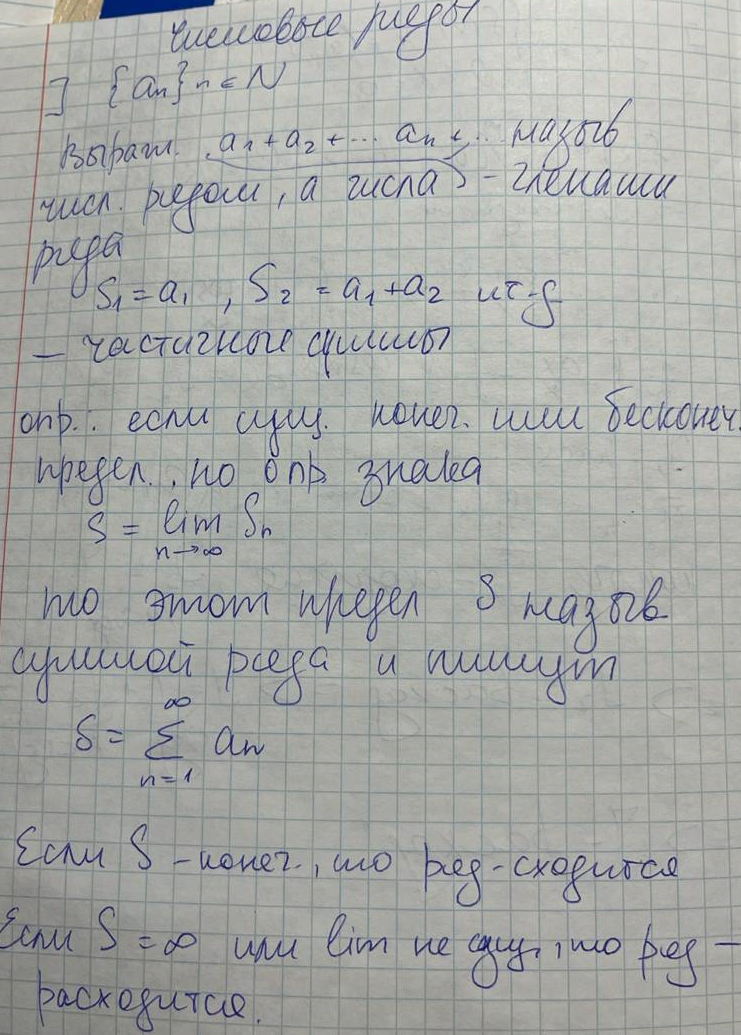 Числовые ряды
] {an} n ∈ N
Выраж. a1 + a2 + ... an + .. назыв
числ. рядом, а числа - членами
ряда
S1 = a1, S2 = a1 + a2 и т.д
— частичные суммы
опр.: если сущ. конеч. или бесконеч.
предел. по опр знака
S = lim Sn
n→∞
то этот предел S назыв
суммой ряда и пишут
∞
S = Σ an
n=1
Если S - конеч., то ряд - сходится
Если S = ∞ или lim не сущ., то ряд —
расходится.